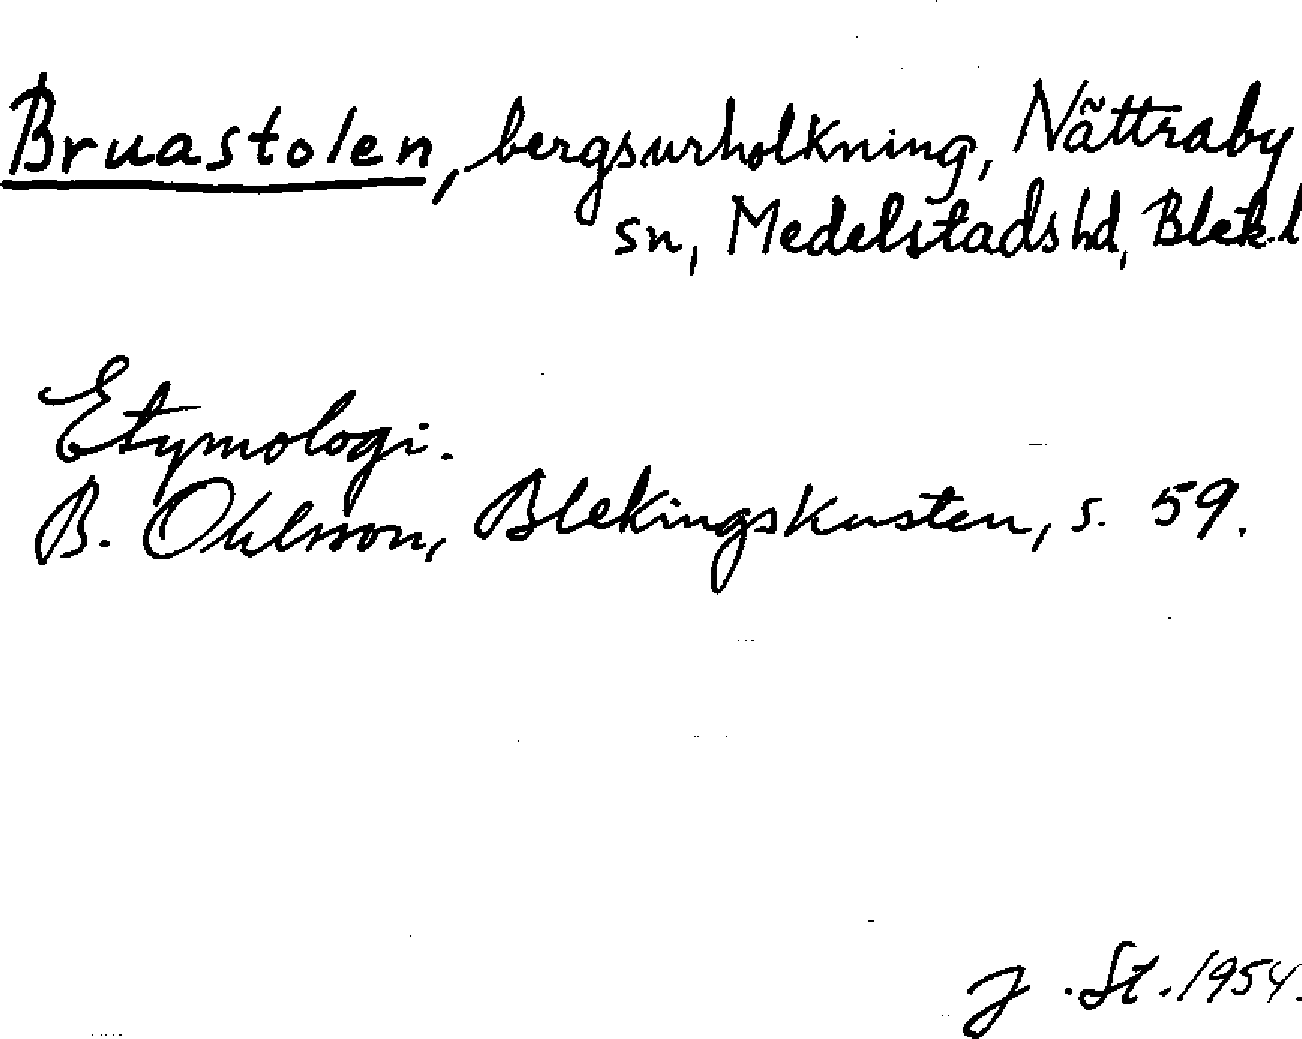 Bruastolen, bergsurholkning, Nättraby
sn, Medelstads hd, Blek.l
Etymologi.
B. Ohlsson, Blekingskusten, s. 59.
J. St. 1954.